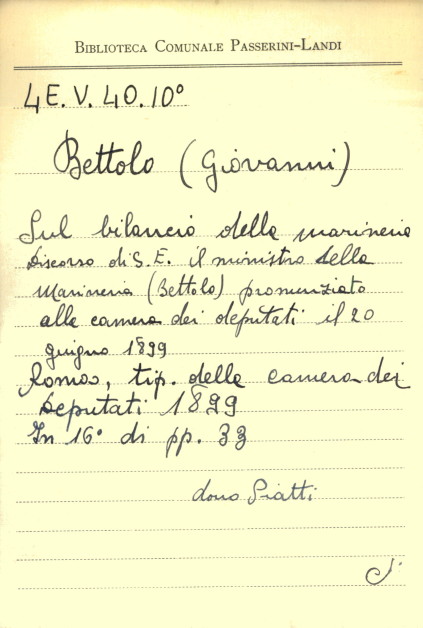 BIBLIOTECA COMUNALE PASSERINI-LANDI
4E.V.40.10°
Bettolo (Giovanni)
Sul bilancio della marineria
Discorso di S.E. il ministro della
Marineria (Bettolo) pronunziato
alla camera dei deputati il 20
giugno 1899
Roma, tip. della camera dei
Deputati 1899
In 16° di pp. 33
dono Piatti